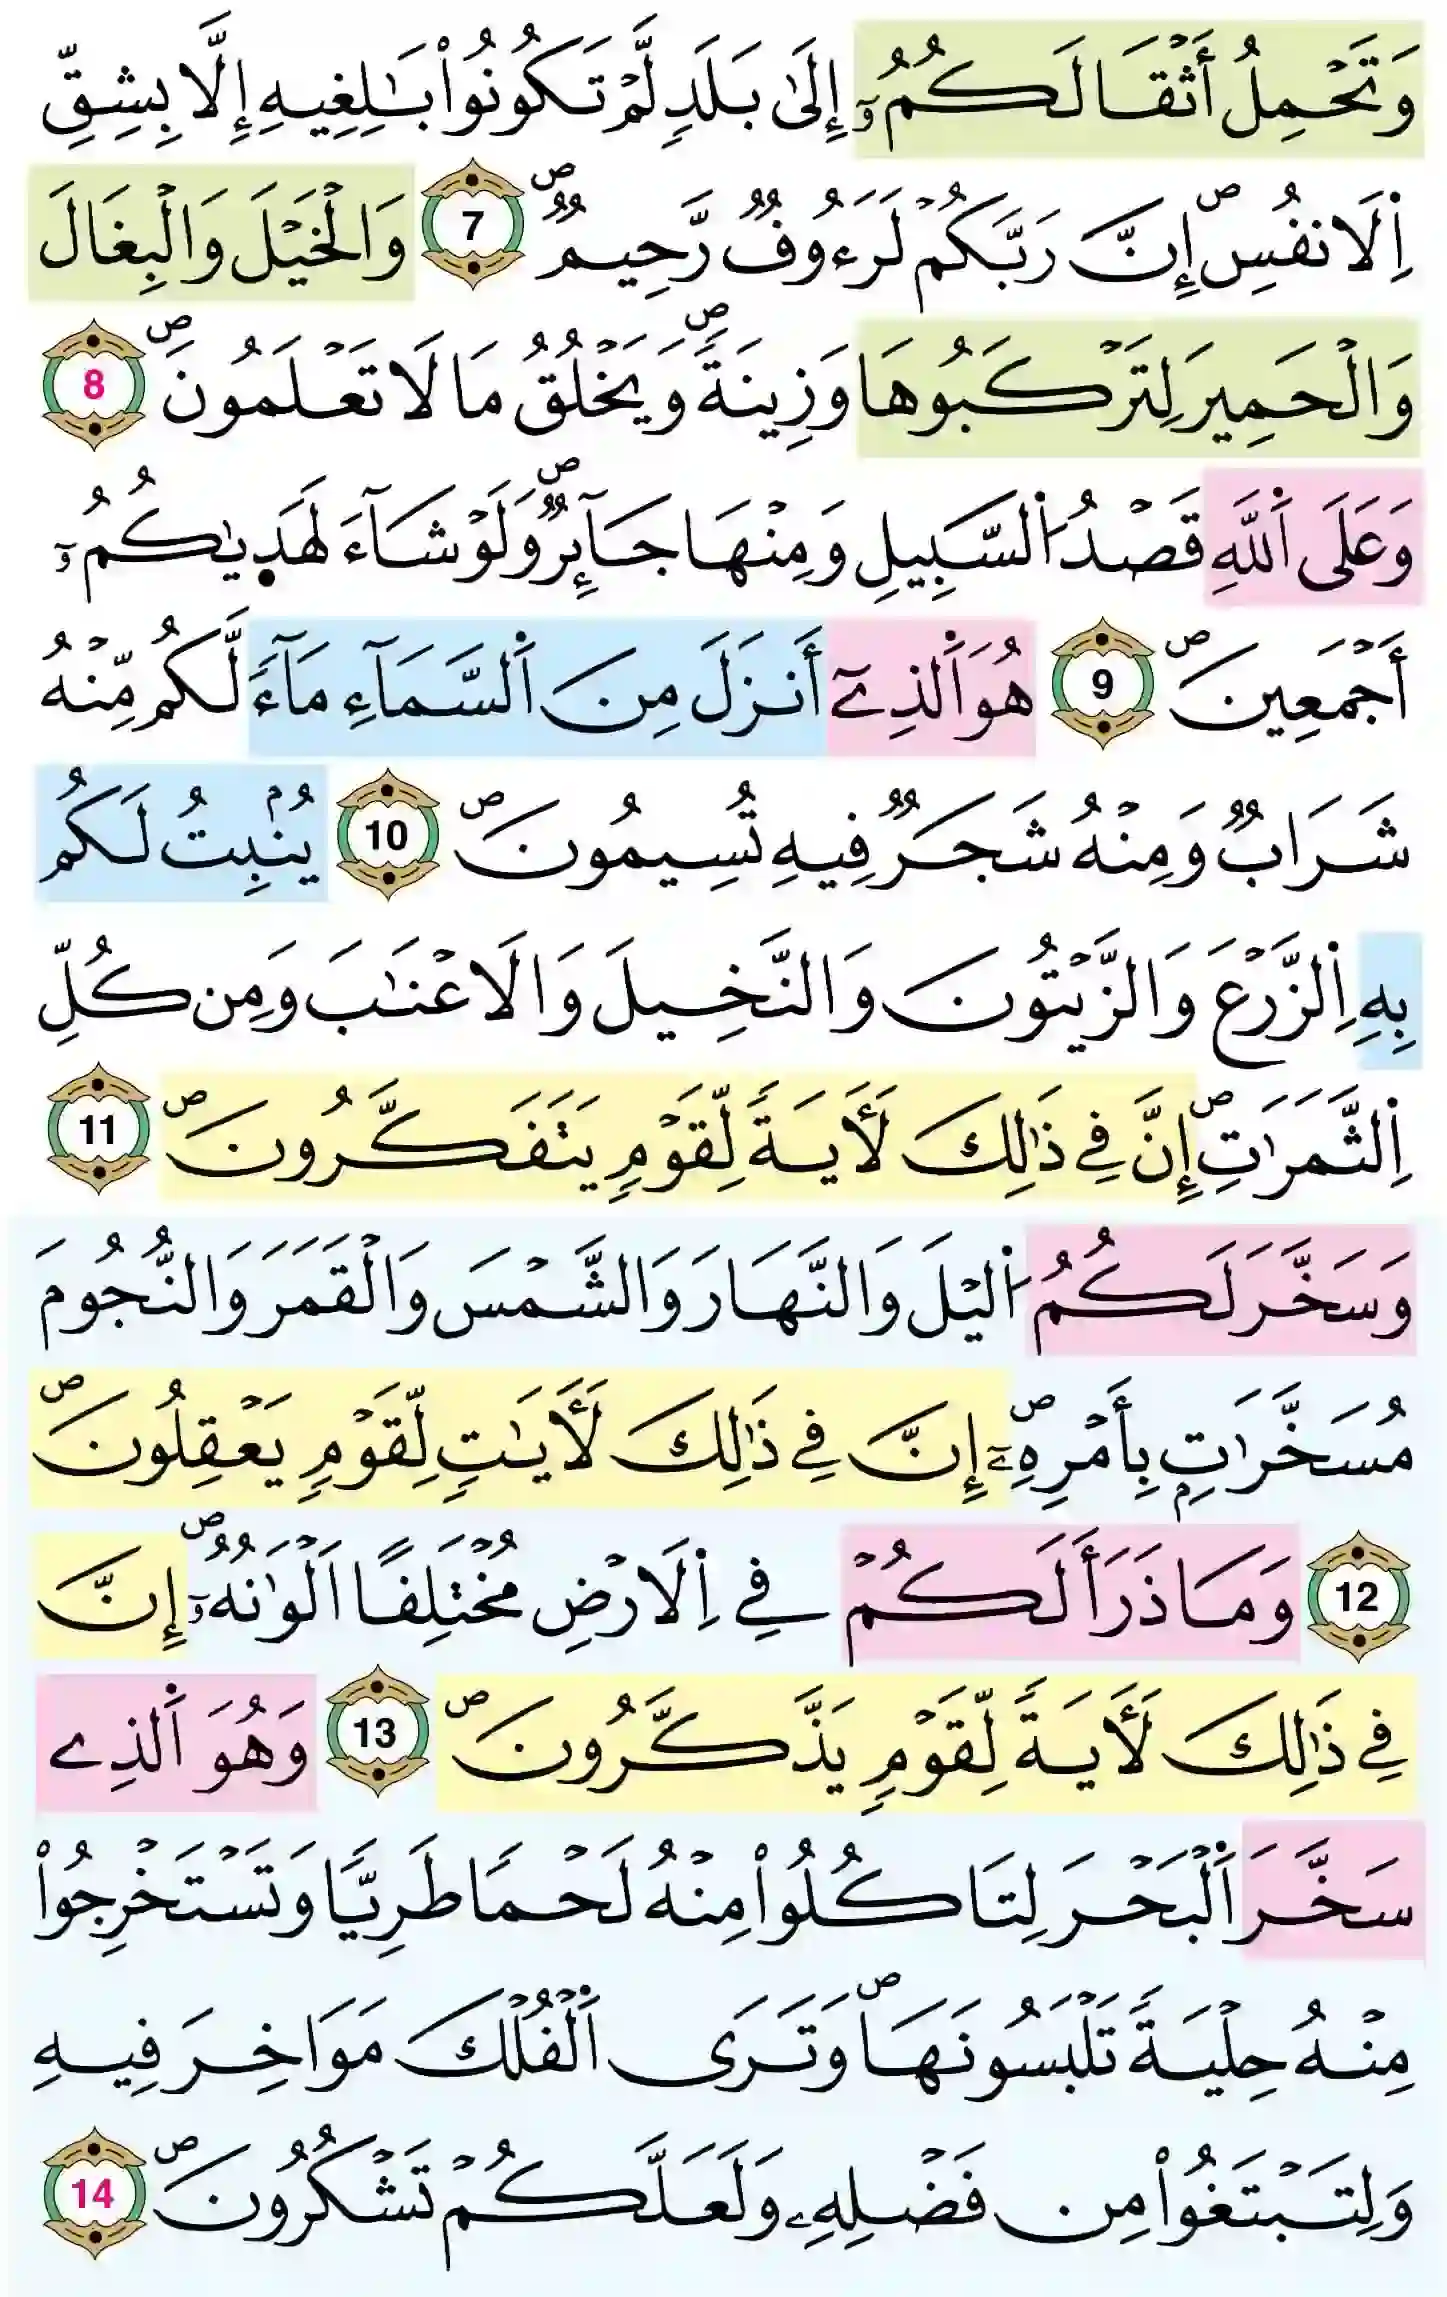 وَتَحْمِلُ أَثْقَالَكُمُۥٓ إِلَىٰ بَلَدٖ لَّمْ تَكُونُواْ بَٰلِغِيهِ إِلَّا بِشِقِّ
اِ۬لَانفُسِۖ إِنَّ رَبَّكُمْ لَرَءُوفٞ رَّحِيمٞۖ 7 وَالْخَيْلَ وَالْبِغَالَ
وَالْحَمِيرَ لِتَرْكَبُوهَا وَزِينَةٗۖ وَيَخْلُقُ مَا لَا تَعْلَمُونَۖ 8
وَعَلَى اَ۬للَّهِ قَصْدُ اُ۬لسَّبِيلِ وَمِنْهَا جَآئِرٞۖ وَلَوْ شَآءَ لَهَد۪يٰكُمُۥٓ
أَجْمَعِينَۖ 9 هُوَ اَ۬لذِےٓ أَنزَلَ مِنَ اَ۬لسَّمَآءِ مَآءٗ لَّكُم مِّنْهُ
شَرَابٞ وَمِنْهُ شَجَرٞ فِيهِ تُسِيمُونَۖ 10 يُنۢبِتُ لَكُم
بِهِ اِ۬لزَّرْعَ وَالزَّيْتُونَ وَالنَّخِيلَ وَالَاعْنَٰبَ وَمِن كُلِّ
اِ۬لثَّمَرَٰتِۖ إِنَّ فِے ذَٰلِكَ لَأٓيَةٗ لِّقَوْمٖ يَتَفَكَّرُونَۖ 11
وَسَخَّرَ لَكُمُ اُ۬ليْلَ وَالنَّهَارَ وَالشَّمْسَ وَالْقَمَرَ وَالنُّجُومَ
مُسَخَّرَٰتِۢ بِأَمْرِهِۦٓۖ إِنَّ فِے ذَٰلِكَ لَأٓيَٰتٖ لِّقَوْمٖ يَعْقِلُونَۖ
12 وَمَا ذَرَأَ لَكُمْ فِے اِ۬لَارْضِ مُخْتَلِفاً اَلْوَٰنُهُۥٓۖ إِنَّ
فِے ذَٰلِكَ لَأٓيَةٗ لِّقَوْمٖ يَذَّكَّرُونَۖ 13 وَهُوَ اَ۬لذِے
سَخَّرَ اَ۬لْبَحْرَ لِتَاكُلُواْ مِنْهُ لَحْماٗ طَرِيّاٗ وَتَسْتَخْرِجُواْ
مِنْهُ حِلْيَةٗ تَلْبَسُونَهَاۖ وَتَرَى اَ۬لْفُلْكَ مَوَاخِرَ فِيهِ
وَلِتَبْتَغُواْ مِن فَضْلِهِۦ وَلَعَلَّكُمْ تَشْكُرُونَۖ 14